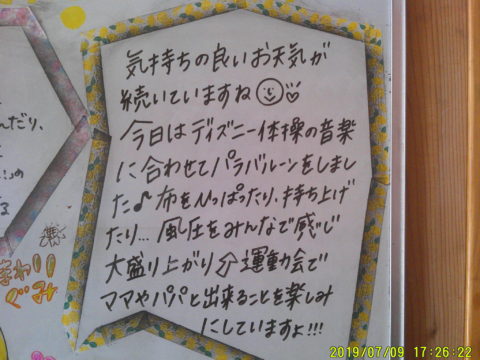 気持ちの良いお天気が
続いていますね
今日はディズニー体操の音楽
に合わせてパラバルーンをしまし
た♪布をひっぱったり、持ち上げ
たり...風圧をみんなで感じ
大盛り上がり⇧運動会で
ママやパパと出来ることを楽しみ
にしていますよ!!!
んだり、
ぐみ
2019/07/09 17:26:22